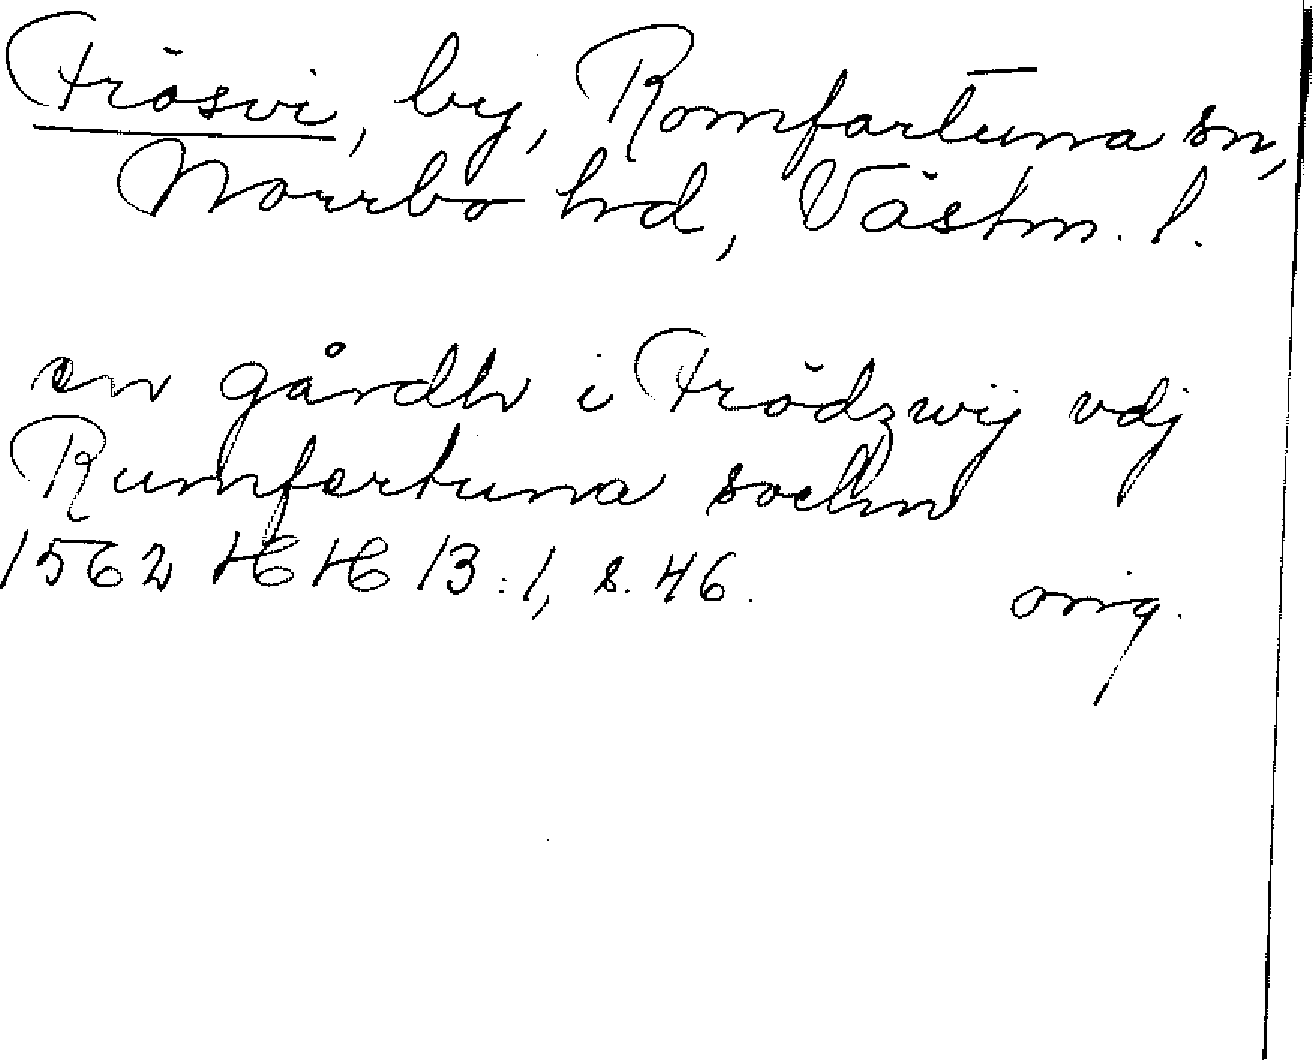 Frösvi, by, Romfartuna sn,
Norrbo hd, Västm. l.
en gårdh i Frödzwij vdj
Rumfertuna sochn
1562 HH 13:1, s. 46.
orig.